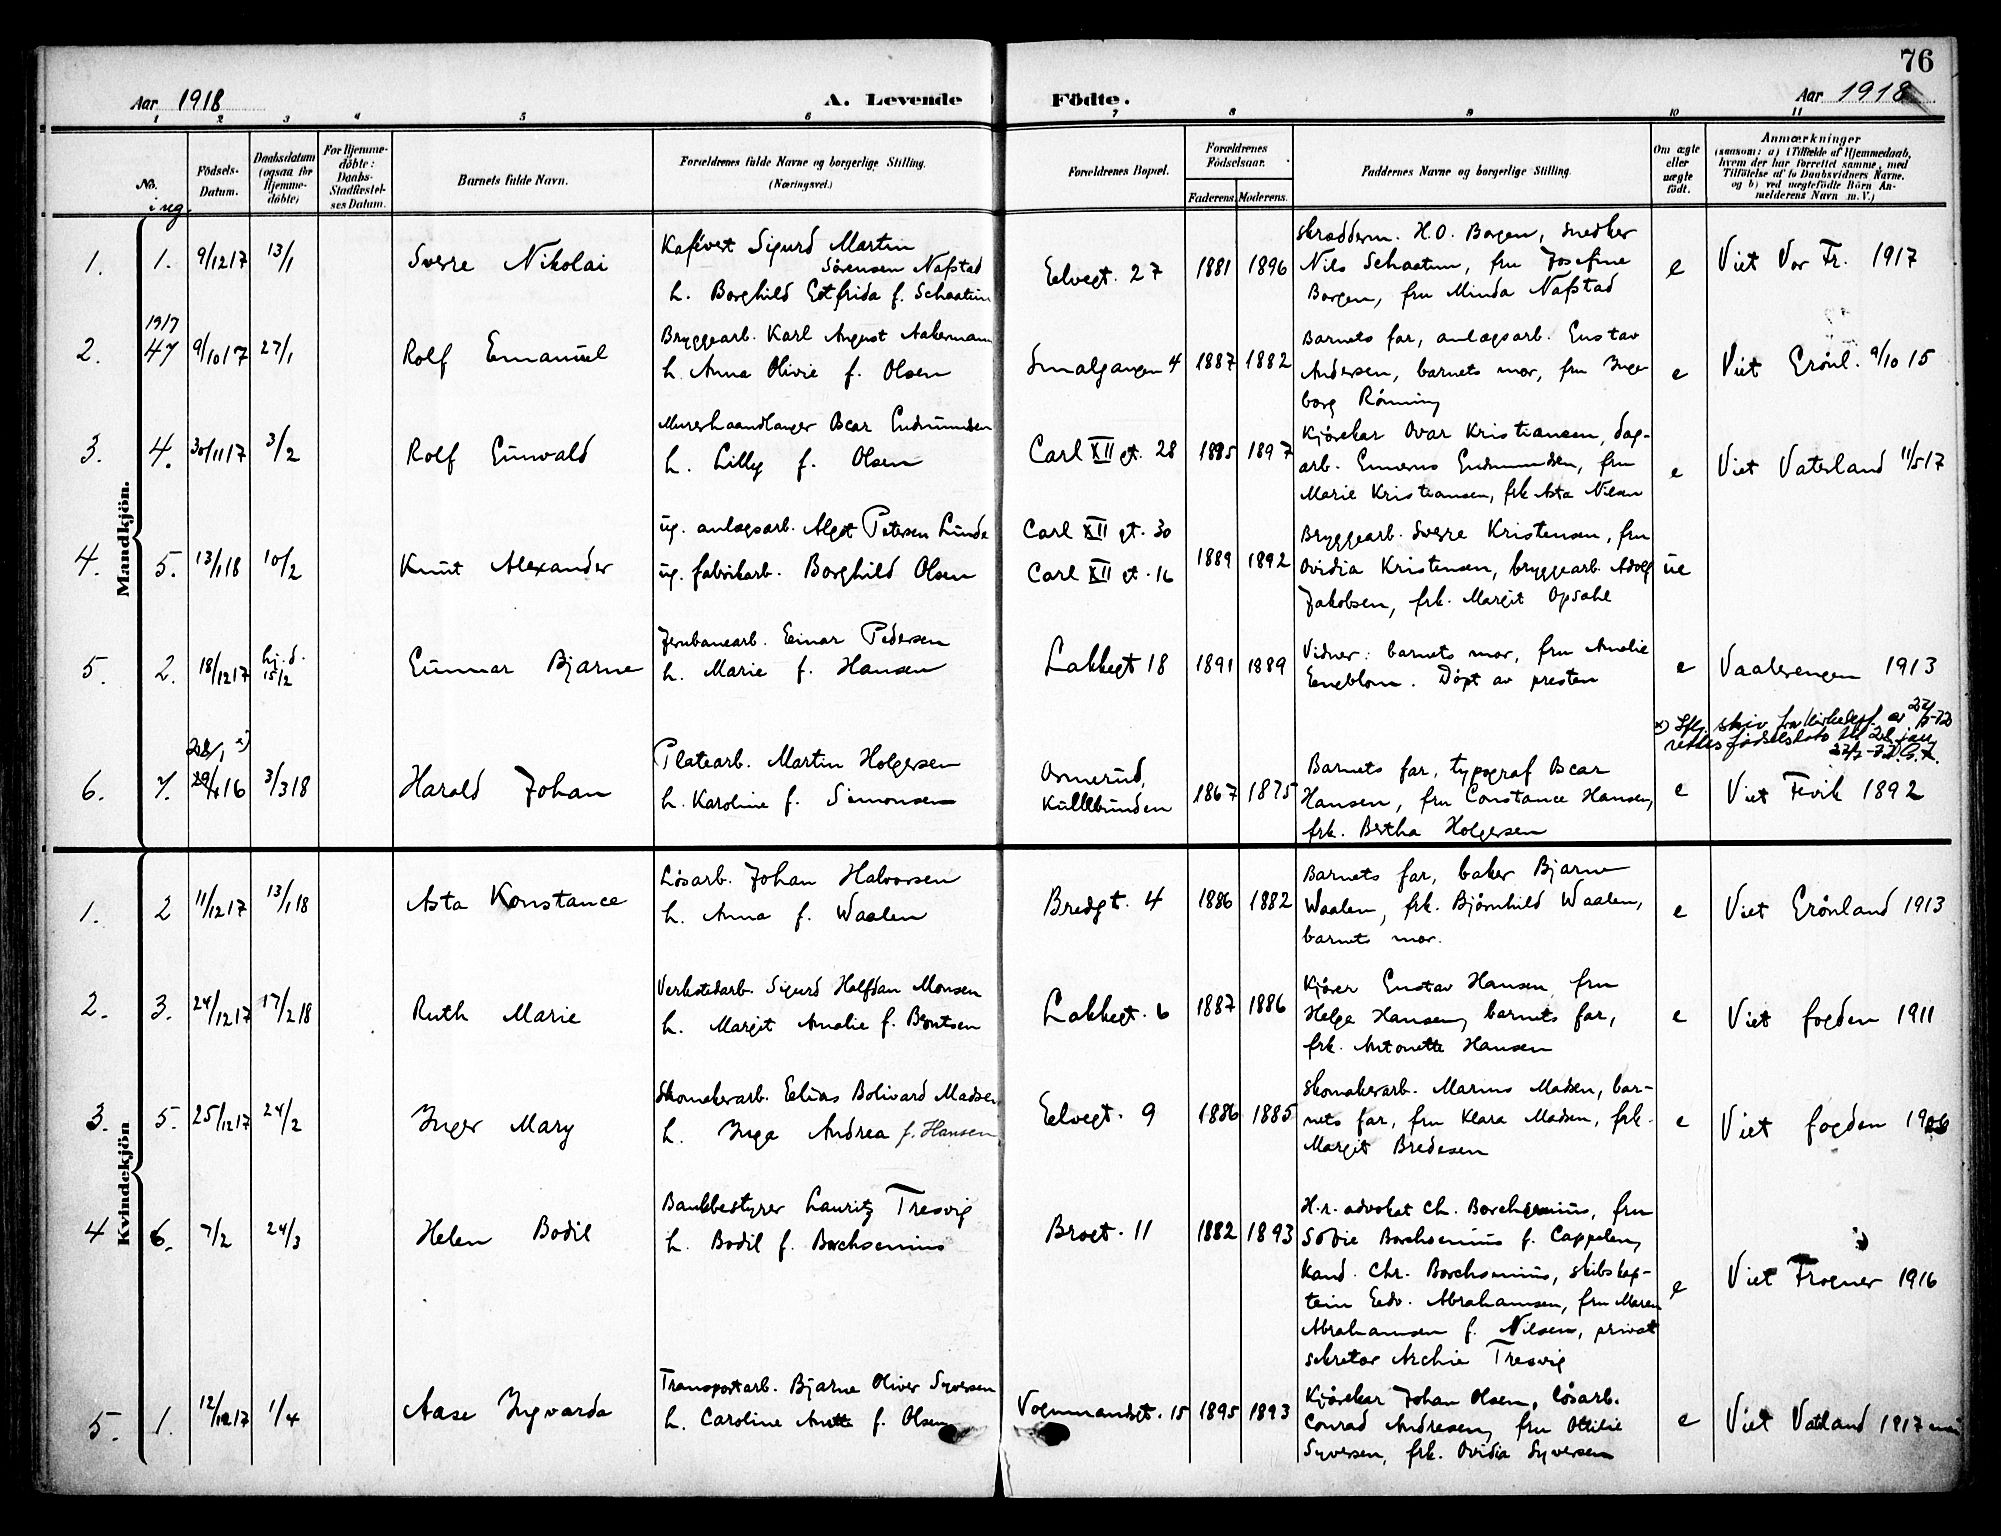 76
Aar 1918
A. Levende Födte.
Aar 1918
1 2 3 4 5 6 7 8 9 10 11
No. i reg.
Födsels-Datum.
Daabsdatum (ogsaa for Hjemmedöbte)
For Hjemmedöbte: Daabs-Stadfæstelses Datum.
Barnets fulde Navn.
Forældrenes fulde Navne og borgerlige Stilling.
(Næringsvei.)
Forældrenes Bopæl.
Forældrenes Födselsaar.
Faderens. Moderens.
Faddernes Navne og borgerlige Stilling.
Om ægte eller uægte födt.
Anmærkninger
(saasom: a) i Tilfælde af Hjemmedaab, hvem der har forrettet samme, med Tilföielse af to Daabsvidners Navne. og b) ved uægtefödte Börn Anmelderens Navn m. V.)
Mandkjön.
1. 1. 9/12 17 13/1 Sverre Nikolai
Kafévert Sigurd Martin
Sørensen Nafstad
h. Borghild Gotfrida f. Schaatun
Elvegt. 27 1881 1896
Skrædderm. H.O. Borgen, snedker
Nils Schaatun, fru Josefine
Borgen, fru Minda Nafstad
e Viet Vor Fr. 1917
2. 1917 47 9/10 17 27/1 Rolf Emanuel
Bryggearb. Karl August Aakermann
h. Anna Olivie f. Olsen
Smalgangen 4 1887 1882
Barnets far, anlægsarb. Gustav
Andersen, barnets mor, fru Inge
borg Rönning
e Viet Grönl. 9/10 15
3. 4. 30/11 17 3/2 Rolf Gunvald
Murerhaandlanger Oscar Gudmundsen
h. Lilly f. Olsen
Carl XII gt. 28 1885 1897
Kjørekar Ovar Kristiansen, dag-
arb. Gunerius Gudmundsen, fru
Marie Kristiansen, frk Asta Nilsen
e Viet Vaterland 11/5 17
4. 5. 13/1 18 10/2 Knut Alexander
ug. anlægsarb. Algot Petersen Lunde
ug. fabrikarb. Borghild Olsen
Carl XII gt. 30
Carl XII gt. 16
1889 1892
Bryggearb. Sverre Kristensen, fru
Ovidia Kristensen, bryggearb. Adolf
Jakobsen, frk. Margit Opsahl
ue
5. 2. 18/12 17 hj. d. 15/2 Gunnar Bjarne
Jernbanearb. Einar Pedersen
h. Marie f. Hansen
Lakkegt 18 1891 1889
Vidner: barnets mor, fru Amalie
Engblom. Döpt av presten
e Vaalerengen 1913
x) Iflg. skriv fra Kirkedep. av
rettes fødselsdato til 28. jan.
6. 7. 28/1 x) 29/1 16 3/3 18 Harald Johan
Platearb. Martin Holgersen
h. Karoline f. Simonsen
Ormerud,
Kullebunden
1867 1875
Barnets far, typograf Oscar
Hansen, fru Constance Hansen,
frk. Bertha Holgersen
e Viet Fevik 1892
Kvindekjön
1. 2 11/12 17 13/1 18 Asta Konstance
Løsarb. Johan Halvorsen
h. Anna f. Waalen
Bredgt. 4 1886 1882
Barnets far, baker Bjarne
Waalen, frk. Bjørnhild Waalen,
barnets mor.
e Viet Grönland 1913
2. 3. 24/12 17 17/2 18 Ruth Marie
Verkstedarb. Sigurd Halfdan Monsen
h. Margit Amalie f. Berntsen
Lakkegt. 6 1887 1886
Kjører Gustav Hansen, fru
Helga Hansen, barnets far,
frk. Antonette Hansen
e Viet fogden 1911
3. 5. 25/12 17 24/2 Inger Mary
Skomakerarb. Edias Bolivard Madsen
h. Inga Andrea f. Hansen
Elvegt. 9 1886 1885
Skomakerarb. Marius Madsen, bar-
nets far, fru Klara Madsen, frk.
Margit Bredesen
e Viet fogden 1906
4 6. 7/2 24/3 Helen Bodil
Bankbestyrer Lauritz Tresvig
h. Bodil f. Borchsenius
Brogt. 11 1882 1893
H.r. advokat Ch. Borchsenius, fru
Sofie Borchsenius f. Cappelen,
Kand. Chr. Borchsenius, skibskap-
tein Edv. Abrahamsen, fru Maren
Abrahamsen f. Nilsen, privat
sekretær Archie Tresvig
e Viet Frogner 1916
5. 1. 12/12 17 1/4 Aase Ingvarda
Transportarb. Bjarne Oliver Syversen
h. Caroline Anette f. Olsen
Vognmandsgt. 15 1895 1893
Kjørekar Johan Olsen, løsarb.
Conrad Andresen, fru Ottilie
Syversen, frk. Ovidia Syversen
e Viet Vatland 1917